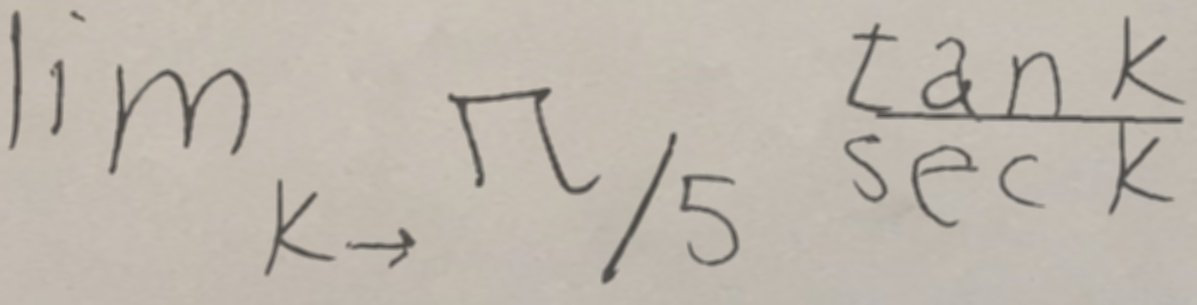 lim k→π/5 tan k / sec k